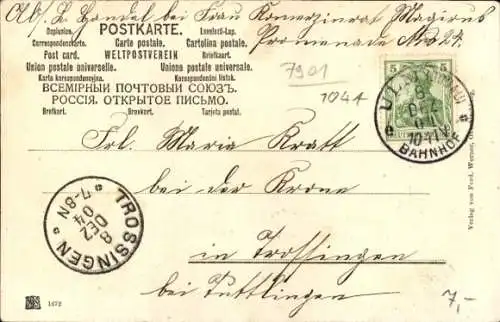 Abs. L. Hendel bei Frau Komerzienrat Magirus
Promenade No 24.
POSTKARTE.
Dopisnice. Levelező-Lap.
Correspondenzkarte. Carte postale. Cartolina postale.
Post card. WELTPOSTVEREIN Briefkaart.
Union postale universelle. Unione postale universale.
Karta korespondencyjna. Korespondenční lístek.
ВСЕМІРНЫЙ ПОЧТОВЫЙ СОЮЗЪ.
РОССІЯ. ОТКРЫТОЕ ПИСЬМО.
Brefkort. Brevkort. Tarjeta postal.
7901
1044
5 5
ULM
8
DEZ
04
BAHNHOF
Frl. Maria Kratt
bei der Krone
in Trossingen
bei Tuttlingen
TROSSINGEN
8
DEZ
04
7-8N
Verlag von Ferd. Werner,
1672
7,-